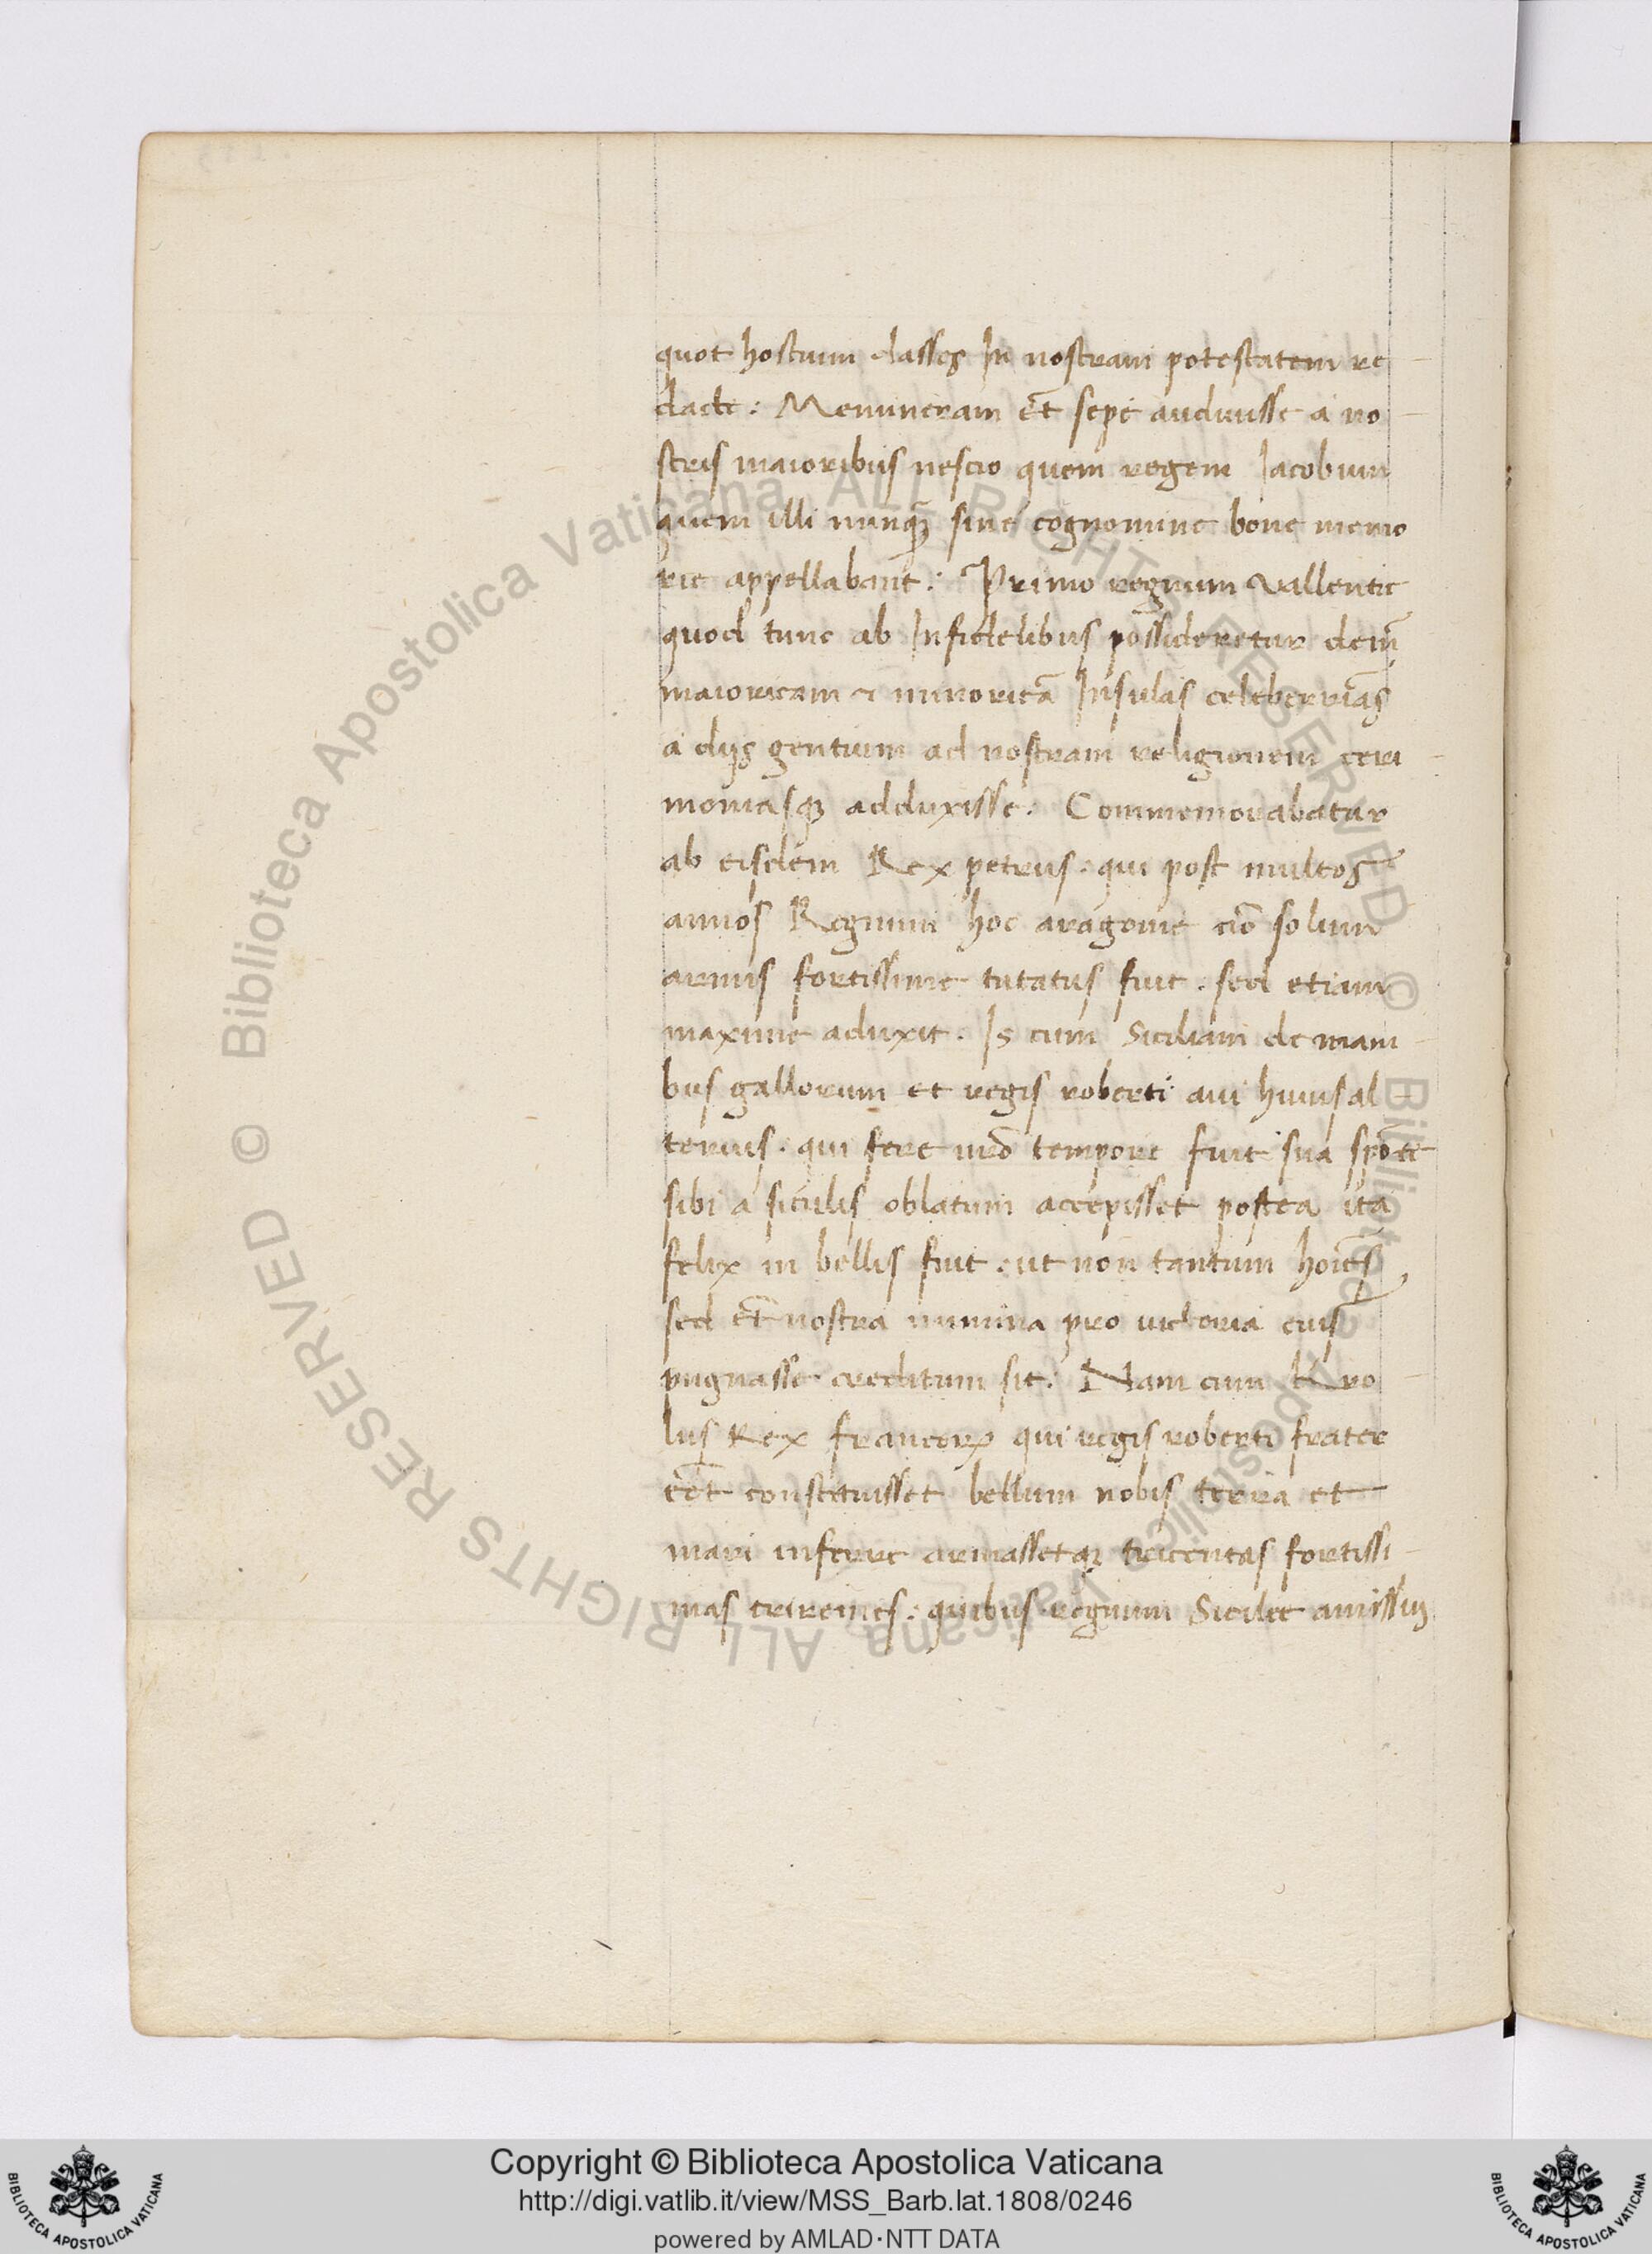 quot hostium classes In nostram potestatem re
dacte: Memineram et̄ sepe audiuisse a no
stris maioribus nescio quem regem Iacobum
quem illi nunqꝫ sine cognomine bone memo
rie appellabant: Primo regnum vallentie
quod tunc ab Infidelibus possideretur dein̄
maioricam ⁊ minoricā Insulas celeberrīas
a dijs gentium ad nostram religionem ceri
moniasqꝫ adduxisse. Commemorabatur
ab eisdem Rex petrus. qui post multos
annos Regnum hoc aragonie nō solum
armis fortissime tutatus fuit. sed etiam
maxime aduxit. Is cum Siciliam de mani
bus gallorum et regis roberti aui huius al
terius. qui fere nr̄o tempore fuit sua spōte
sibi a siculis oblatum accepisset postea ita
felix in bellis fuit. ut non tantum hoīes
sed et̄ nostra numina pro uictoria eius
pugnasse creditum sit: Nam cum Kro
lus Rex francorꝝ qui regis roberti frater
eēt constituisset bellum nobis terra et
mari inferre armassetqꝫ tricentas fortissi
mas triremes. quibus regnum Sicilie amissuꝫ
Copyright © Biblioteca Apostolica Vaticana
http://digi.vatlib.it/view/MSS_Barb.lat.1808/0246
powered by AMLAD·NTT DATA
BIBLIOTECA APOSTOLICA VATICANA
BIBLIOTECA APOSTOLICA VATICANA
© Biblioteca Apostolica Vaticana ALL RIGHTS RESERVED © Biblioteca Apostolica Vaticana ALL RIGHTS RESERVED